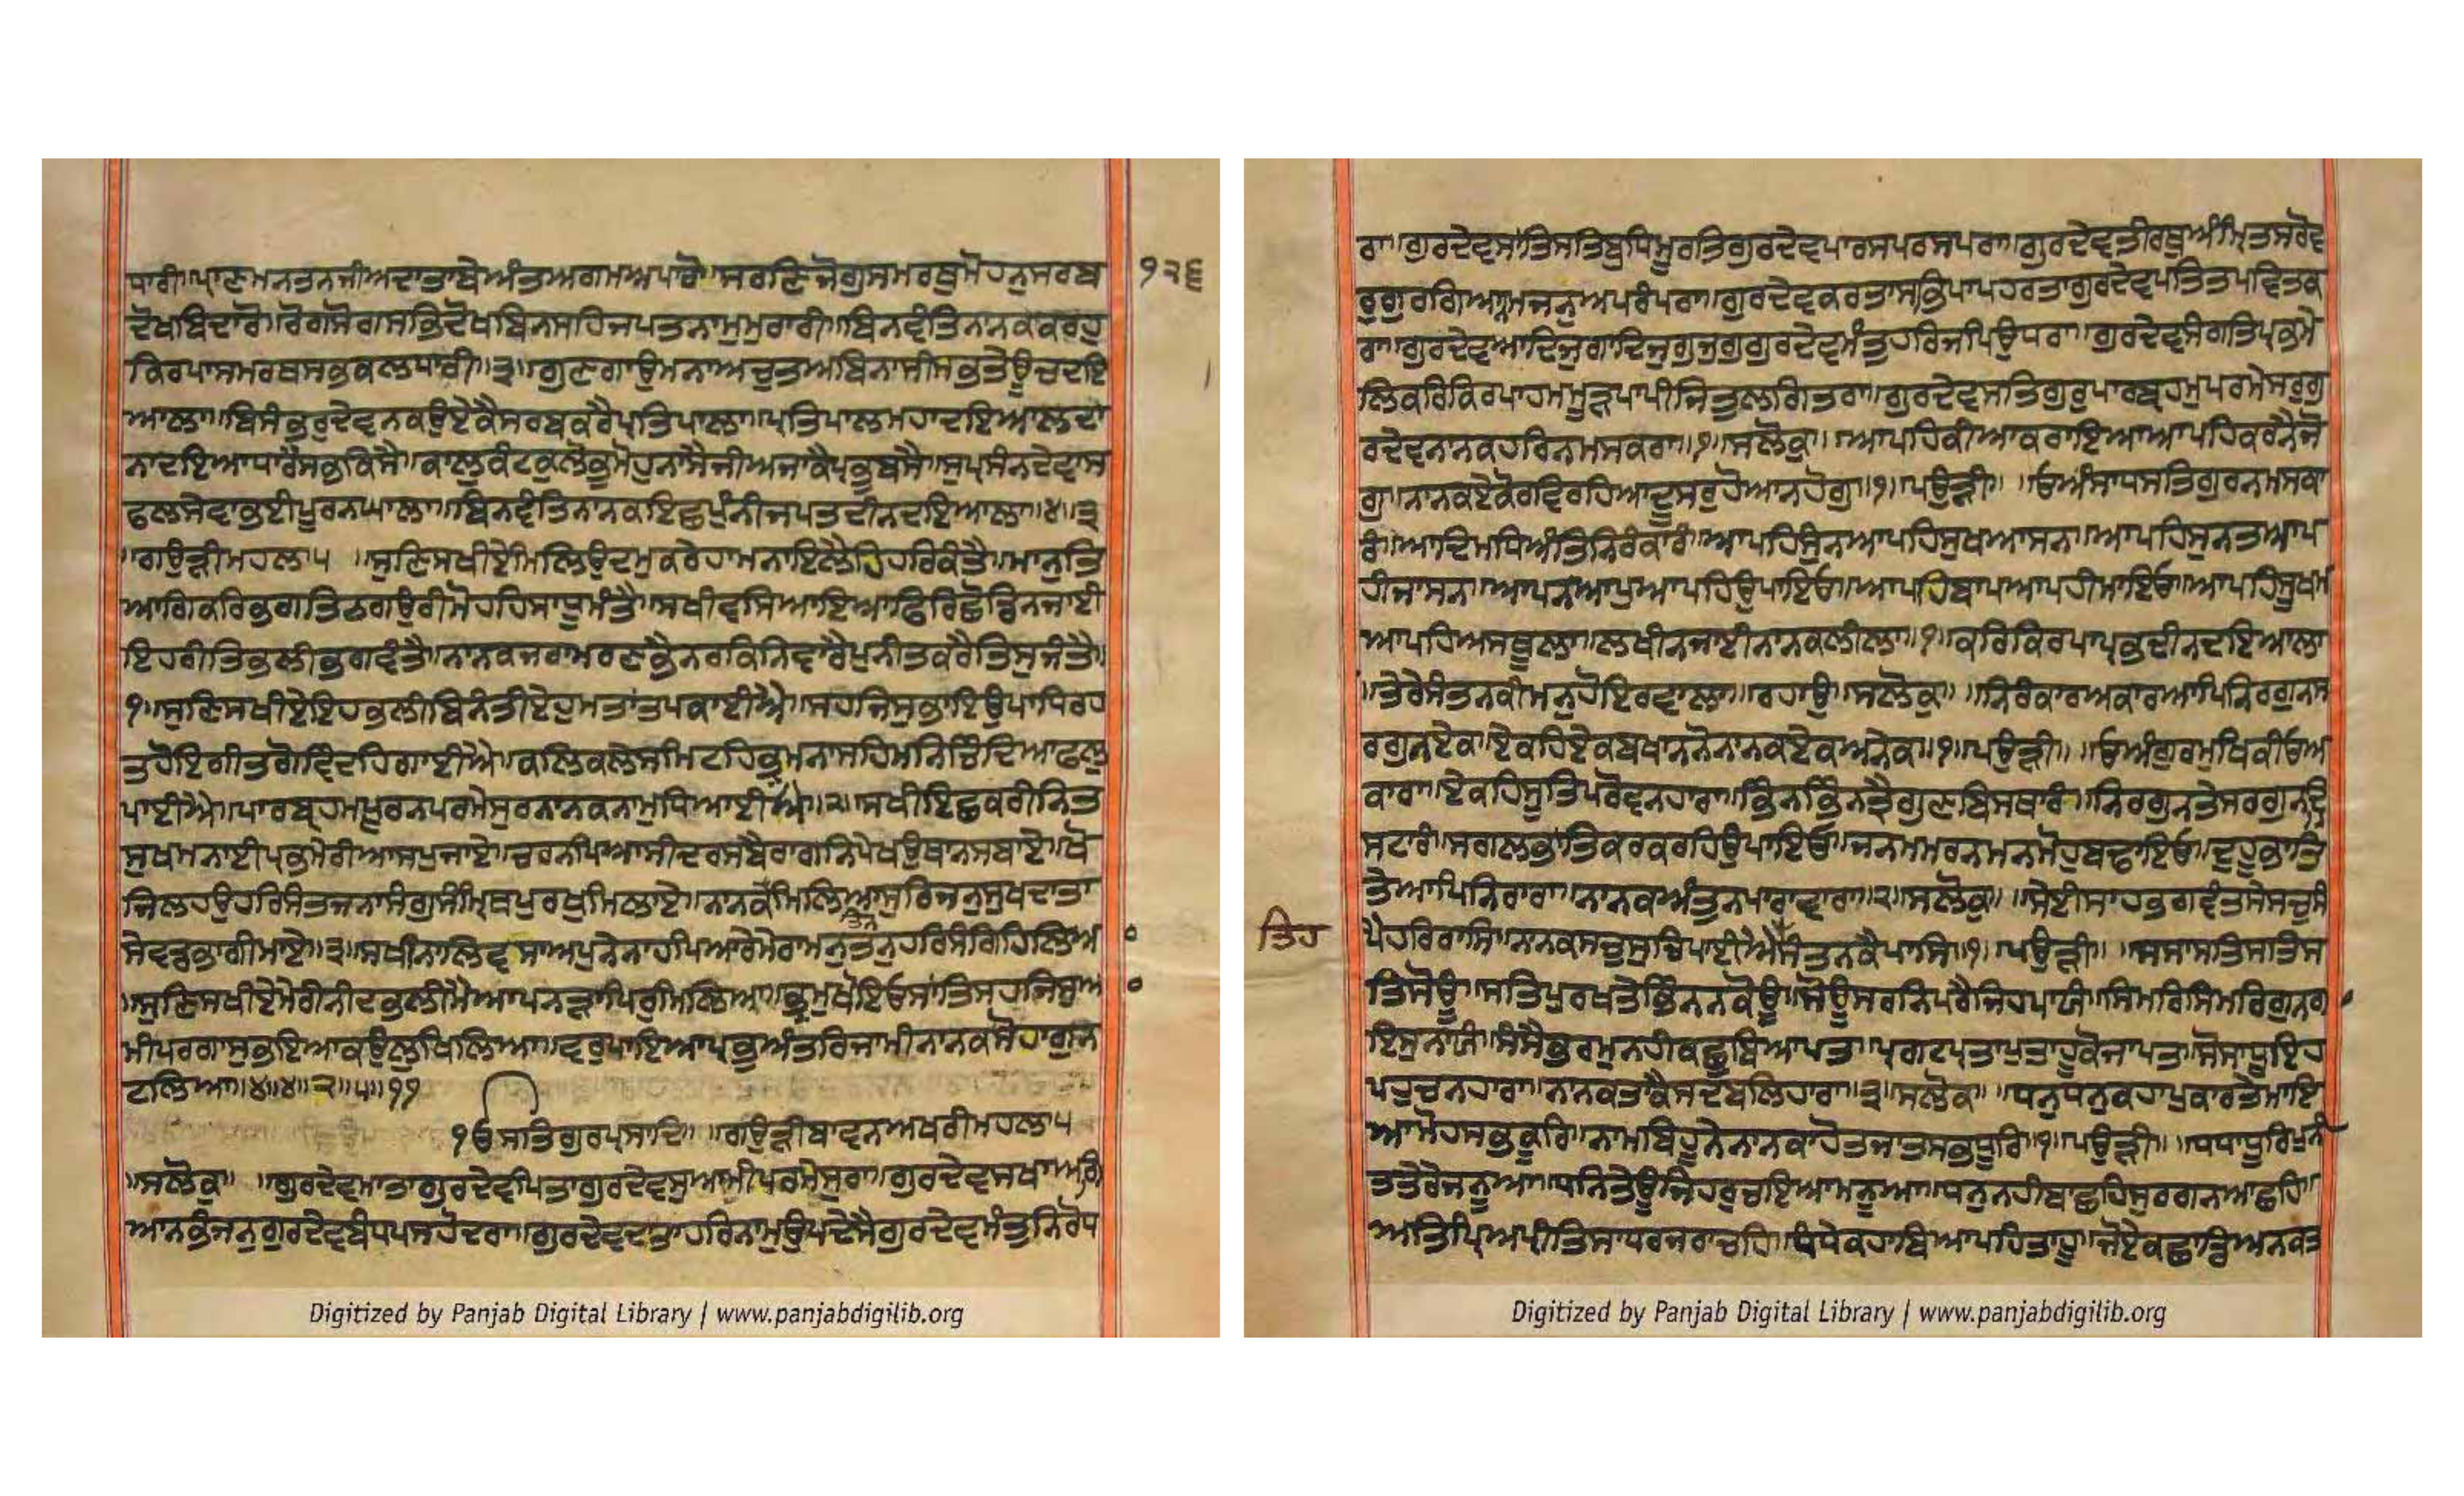 ਧਾਰੀ॥ਪ੍ਰਾਣਮਨਤਨਜੀਅਦਾਤਾਬੇਅੰਤਅਗਮਅਪਾਰੋ॥ਸਰਣਿਜੋਗੁਸਮਰਥੁਮੋਹਨੁਸਰਬ
੧੨੬
ਦੋਖਬਿਦਾਰੋ॥ਰੋਗਸੋਗਸਭਿਦੋਖਬਿਨਸਹਿਜਪਤਨਾਮੁਮੁਰਾਰੀ॥ਬਿਨਵੰਤਿਨਾਨਕਕਰਹੁ
ਕਿਰਪਾਸਮਰਥਸਭਕਲਧਾਰੀ॥੩॥ਗੁਣਗਾਉਮਨਾਅਚੁਤਅਬਿਨਾਸੀਸਭਤੇਊਚਦਇ
ਆਲਾ॥ਬਿਸੰਭਰੁਦੇਵਨਕਉਏਕੈਸਰਬਕਰੈਪ੍ਰਤਿਪਾਲਾ॥ਪ੍ਰਤਿਪਾਲਮਹਾਦਇਆਲਦਾ
ਨਾਦਇਆਧਾਰੇਸਭਕਿਸੈ॥ਕਾਲੁਕੰਟਕੁਲੋਭੁਮੋਹੁਨਾਸੈਜੀਅਜਾਕੈਪ੍ਰਭੁਬਸੈ॥ਸੁਪ੍ਰਸੰਨਦੇਵਾਸ
ਫਲਸੇਵਾਭਈਪੂਰਨਘਾਲਾ॥ਬਿਨਵੰਤਿਨਾਨਕਇਛਪੁੰਨੀਜਪਤਦੀਨਦਇਆਲਾ॥੪॥੩
॥ਗਉੜੀਮਹਲਾ੫ ॥ਸੁਣਿਸਖੀਏਮਿਲਿਉਦਮੁਕਰੇਹਾਮਨਾਇਲੈਹਿਹਰਿਕੰਤੈ॥ਮਾਨੁਤਿ
ਆਗਿਕਰਿਭਗਤਿਠਗਉਰੀਮੋਹਹਿਸਾਧੂਮੰਤੈ॥ਸਖੀਵਸਿਆਇਆਫਿਰਿਛੋਡਿਨਜਾਈ
ਇਹਰੀਤਿਭਲੀਭਗਵੰਤੈ॥ਨਾਨਕਜਰਾਮਰਣਭੈਨਰਕਿਨਿਵਾਰੈਪੁਨੀਤਕਰੈਤਿਸੁਜੰਤੈ॥
੧॥ਸੁਣਿਸਖੀਏਇਹਭਲੀਬਿਨੰਤੀਏਹੁਮਤਾਂਤਪਕਾਈਐ॥ਸਹਜਿਸੁਭਾਇਉਪਾਧਿਰਹ
ਤਹੋਇਗੀਤਗੋਵਿੰਦਹਿਗਾਈਐ॥ਕਲਿਕਲੇਸਮਿਟਹਿਭ੍ਰਮਨਾਸਹਿਮਨਿਚਿੰਦਿਆਫਲੁ
ਪਾਈਐ॥ਪਾਰਬ੍ਰਹਮਪੂਰਨਪਰਮੇਸੁਰਨਾਨਕਨਾਮੁਧਿਆਈਐ॥੨॥ਸਖੀਇਛਕਰੀਨਿਤ
ਸੁਖਮਨਾਈਪ੍ਰਭਮੇਰੀਆਸਪੁਜਾਏ॥ਚਰਨਪਿਆਸੀਦਰਸਬੈਰਾਗਨਿਪੇਖਉਥਾਨਸਬਾਏ॥ਖੋ
ਜਿਲਹਉਹਰਿਸੰਤਜਨਾਸੰਗੁਸੰਮ੍ਰਿਥਪੁਰਖਮਿਲਾਏ॥ਨਾਨਕਮਿਲਿਆਸੁਰਿਜਨੁਸੁਖਦਾਤਾ
ਸੇਵਡਭਾਗੀਮਾਏ॥੩॥ਸਖੀਨਾਲਿਵਸਾਅਪੁਨੇਨਾਹਪਿਆਰੇਮੇਰਾਮਨੁਤਨੁਹਰਿਸੰਗਿਹਿਲਿਆ
॥ਸੁਣਿਸਖੀਏਮੇਰੀਨੀਦਭਲੀਮੈਆਪਨੜਾਪਿਰੁਮਿਲਿਆ॥ਭ੍ਰਮੁਖੋਇਓਸਾਂਤਿਸਹਜਿਸੁਆ
ਮੀਪਰਗਾਸੁਭਇਆਕਉਲੁਖਿਲਿਆ॥ਵਰੁਪਾਇਆਪ੍ਰਭੁਅੰਤਰਿਜਾਮੀਨਾਨਕਸੋਹਾਗੁਨ
ਟਲਿਆ॥੪॥੪॥੨॥੫॥੧੧
੧ੳਸਤਿਗੁਰਪ੍ਰਸਾਦਿ॥ ॥ਗਉੜੀਬਾਵਨਅਖਰੀਮਹਲਾ੫
॥ਸਲੋਕੁ॥ ॥ਗੁਰਦੇਵਮਾਤਾਗੁਰਦੇਵਪਿਤਾਗੁਰਦੇਵਸੁਆਮੀਪਰਮੇਸੁਰਾ॥ਗੁਰਦੇਵਸਖਾਅਗਿ
ਆਨਭੰਜਨੁਗੁਰਦੇਵਬੰਧਪਸਹੋਦਰਾ॥ਗੁਰਦੇਵਦਾਤਾਹਰਿਨਾਮੁਉਪਦੇਸੈਗੁਰਦੇਵਮੰਤੁਨਿਰੋਧ
ਰਾ॥ਗੁਰਦੇਵਸਾਂਤਿਸਤਿਬੁਧਿਮੂਰਤਿਗੁਰਦੇਵਪਾਰਸਪਰਸਪਰਾ॥ਗੁਰਦੇਵਤੀਰਥੁਅੰਮ੍ਰਿਤਸਰੋਵ
ਰੁਗੁਰਗਿਆਨਮਜਨੁਅਪਰੰਪਰਾ॥ਗੁਰਦੇਵਕਰਤਾਸਭਿਪਾਪਹਰਤਾਗੁਰਦੇਵਪਤਿਤਪਵਿਤਕ
ਰਾ॥ਗੁਰਦੇਵਆਦਿਜੁਗਾਦਿਜੁਗੁਜੁਗੁਗੁਰਦੇਵਮੰਤੁਹਰਿਜਪਿਉਧਰਾ॥ਗੁਰਦੇਵਸੰਗਤਿਪ੍ਰਭਮੇ
ਲਿਕਰਿਕਿਰਪਾਹਮਮੂੜਪਾਪੀਜਿਤੁਲਗਿਤਰਾ॥ਗੁਰਦੇਵਸਤਿਗੁਰੁਪਾਰਬ੍ਰਹਮੁਪਰਮੇਸਰੁਗੁ
ਰਦੇਵਨਾਨਕਹਰਿਨਮਸਕਰਾ॥੧॥ਸਲੋਕੁ॥ ॥ਆਪਹਿਕੀਆਕਰਾਇਆਆਪਹਿਕਰਨੈਜੋ
ਗੁ॥ਨਾਨਕਏਕੋਰਵਿਰਹਿਆਦੂਸਰੁਹੋਆਨਹੋਗੁ॥੧॥ਪਉੜੀ॥ ॥ਓਅੰਸਾਧਸਤਿਗੁਰਨਮਸਕਾ
ਰੰ॥ਆਦਿਮਧਿਅੰਤਿਨਿਰੰਕਾਰੰ॥ਆਪਹਿਸੁੰਨਆਪਹਿਸੁਖਆਸਨ॥ਆਪਹਿਸੁਨਤਆਪ
ਹੀਜਾਸਨ॥ਆਪਨਆਪੁਆਪਹਿਉਪਾਇਓ॥ਆਪਹਿਬਾਪਆਪਹੀਮਾਇਓ॥ਆਪਹਿਸੂਖਮ
ਆਪਹਿਅਸਥੂਲਾ॥ਲਖੀਨਜਾਈਨਾਨਕਲੀਲਾ॥੧॥ਕਰਿਕਿਰਪਾਪ੍ਰਭਦੀਨਦਇਆਲਾ
॥ਤੇਰੇਸੰਤਨਕੀਮਨੁਹੋਇਰਵਾਲਾ॥ਰਹਾਉ॥ਸਲੋਕੁ॥ ॥ਨਿਰੰਕਾਰਅਕਾਰਆਪਿਨਿਰਗੁਨਸ
ਰਗੁਨਏਕ॥ਏਕਹਿਏਕਬਖਾਨਨੋਨਾਨਕਏਕਅਨੇਕ॥੧॥ਪਉੜੀ॥ ॥ਓਅੰਗੁਰਮੁਖਿਕੀਓਅ
ਕਾਰਾ॥ਏਕਹਿਸੂਤਿਪਰੋਵਨਹਾਰਾ॥ਭਿੰਨਭਿੰਨਤ੍ਰੈਗੁਣਬਿਸਥਾਰੰ॥ਨਿਰਗੁਨਤੇਸਰਗੁਨਦ੍ਰਿ
ਸਟਾਰੰ॥ਸਗਲਭਾਤਿਕਰਕਰਹਿਉਪਾਇਓ॥ਜਨਮਮਰਨਮਨਮੋਹੁਬਢਾਇਓ॥ਦੁਹੂਭਾਤਿ
ਤੇਆਪਿਨਿਰਾਰਾ॥ਨਾਨਕਅੰਤੁਨਪਾਰਾਵਾਰਾ॥੨॥ਸਲੋਕੁ॥ ॥ਸੇਈਸਾਹਭਗਵੰਤਸੇਸਚੁਸੰ
ਤਿਹ
ਪੈਹਰਿਰਾਸਿ॥ਨਾਨਕਸਚੁਸੁਚਿਪਾਈਐਸੰਤਨਕੈਪਾਸਿ॥੧॥ਪਉੜੀ॥ ॥ਸਸਾਸਤਿਸਤਿਸ
ਤਿਸੋਊ॥ਸਤਿਪੁਰਖਤੇਭਿੰਨਨਕੋਊ॥ਸੋਊਸਰਨਿਪਰੈਜਿਹਪਾਯੰ॥ਸਿਮਰਿਸਿਮਰਿਗੁਨਗਾ
ਇਸੁਨਾਯੰ॥ਸੰਸੈਭਰਮੁਨਹੀਕਛੁਬਿਆਪਤ॥ਪ੍ਰਗਟਪ੍ਰਤਾਪੁਤਾਹੂਕੋਜਾਪਤ॥ਸੋਸਾਧੂਇਹ
ਪਹੁਚਨਹਾਰਾ॥ਨਾਨਕਤਾਕੈਸਦਬਲਿਹਾਰਾ॥੩॥ਸਲੋਕ॥ ॥ਧਨੁਧਨੁਕਹਾਪੁਕਾਰਤੇਮਾਇ
ਆਮੋਹਸਭਕੂਰਿ॥ਨਾਮਬਿਹੂਨੇਨਾਨਕਾਹੋਤਜਾਤਸਭਧੂਰਿ॥੧॥ਪਉੜੀ॥ ॥ਧਧਾਧੂਰਿਪੁਨੀ
ਤਤੇਰੇਜਨੂਆ॥ਧਨਿਤੇਊਜਿਹਰੁਚਇਆਮਨੂਆ॥ਧਨੁਨਹੀਬਾਛਹਿਸੁਰਗਨਆਛਹਿ॥
ਅਤਿਪ੍ਰਿਅਪ੍ਰੀਤਿਸਾਧਰਜਰਾਚਹਿ॥ਧੰਧੇਕਹਾਬਿਆਪਹਿਤਾਹੂ॥ਜੋਏਕਛਾਡਿਅਨਕਤ
Digitized by Panjab Digital Library | www.panjabdigilib.org
Digitized by Panjab Digital Library | www.panjabdigilib.org